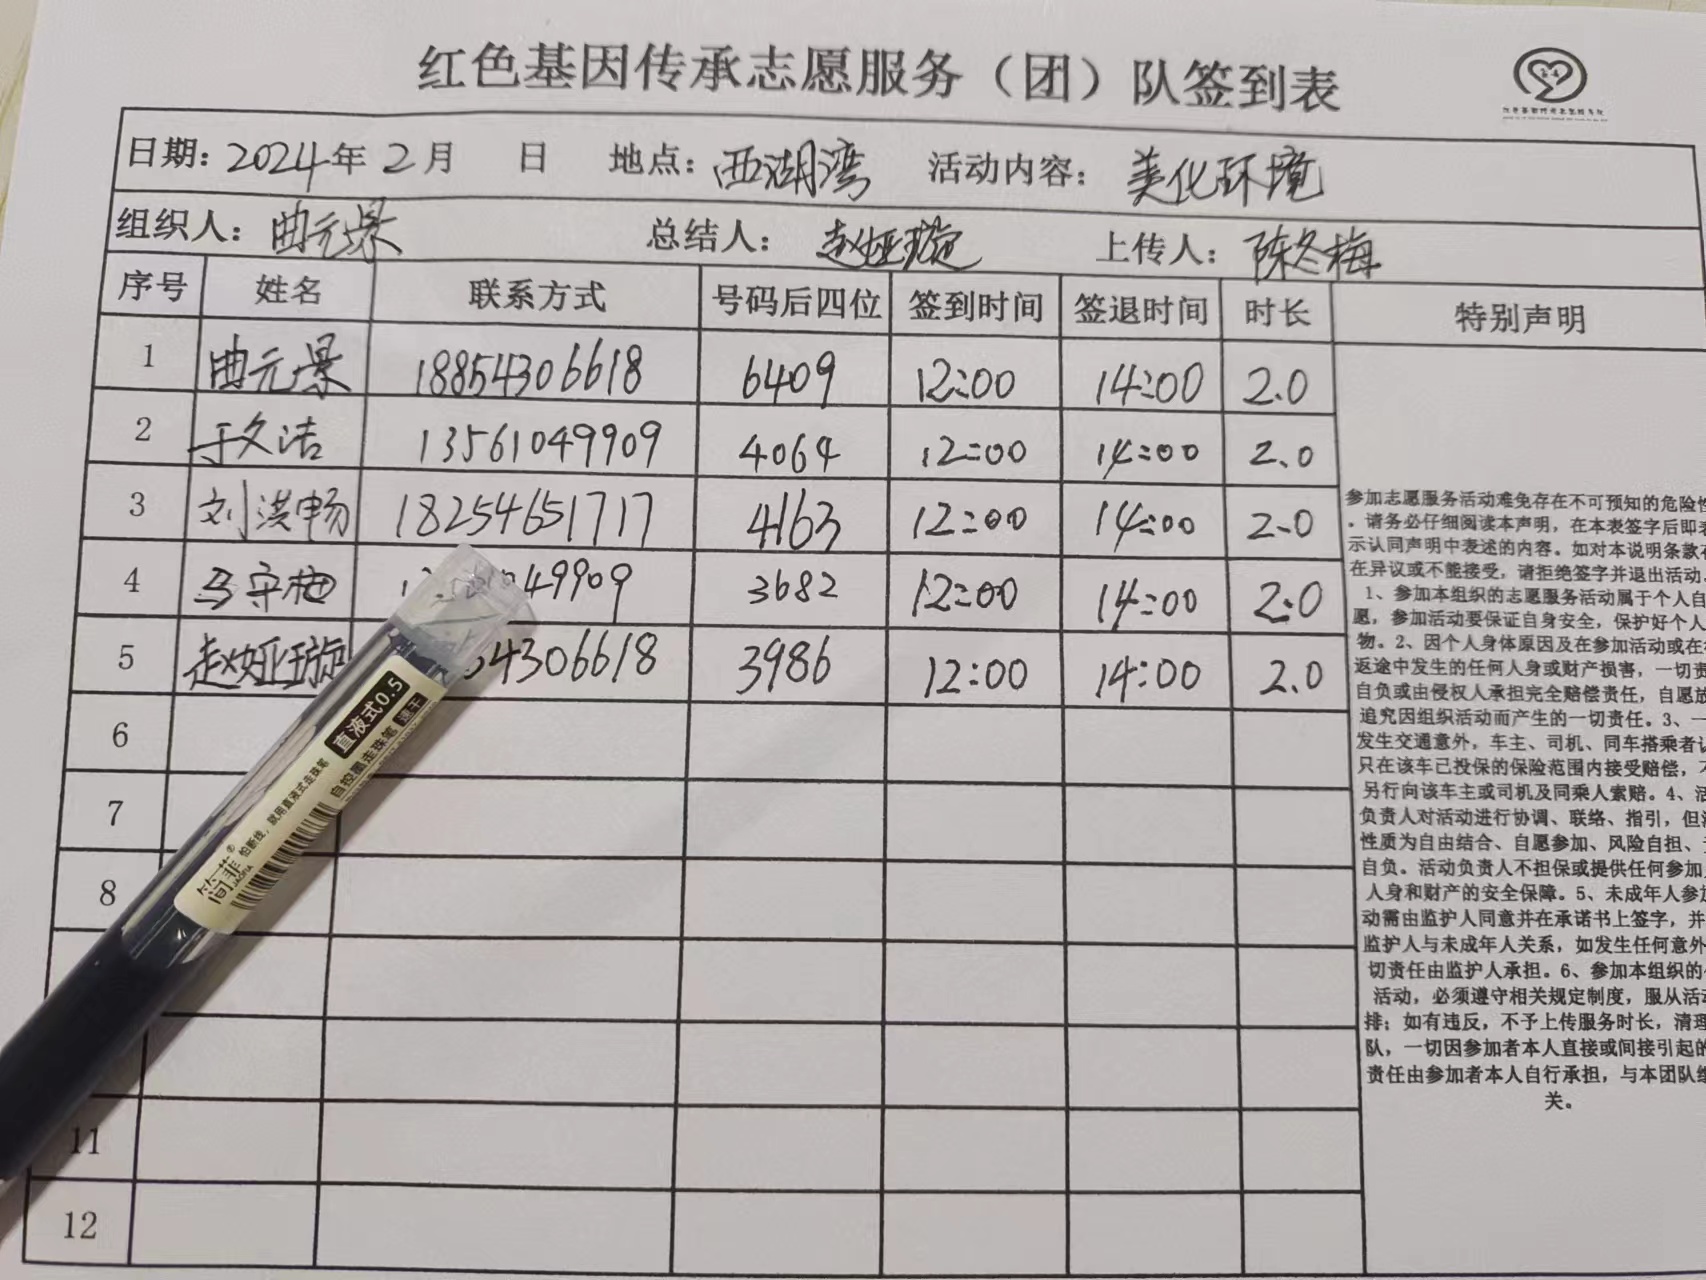 红色基因传承志愿服务（团）队签到表
日期：2024年2月 日 地点：西湖湾 活动内容：美化环境
组织人：曲元景 总结人：赵娅璇 上传人：陈冬梅
序号 姓名 联系方式 号码后四位 签到时间 签退时间 时长 特别声明
1 曲元景 18854306618 6409 12:00 14:00 2.0
2 于文洁 13561049909 4064 12:00 14:00 2.0
3 刘洪畅 18254651717 4163 12:00 14:00 2.0
4 马守梅 49909 3682 12:00 14:00 2.0
5 赵娅璇 54306618 3986 12:00 14:00 2.0
6
7
8
11
12
参加志愿服务活动难免存在不可预知的危险性
．请务必仔细阅读本声明，在本表签字后即表
示认同声明中表述的内容。如对本说明条款存
在异议或不能接受，请拒绝签字并退出活动。
1、参加本组织的志愿服务活动属于个人自
愿，参加活动要保证自身安全，保护好个人
物。2、因个人身体原因及在参加活动或在
返途中发生的任何人身或财产损害，一切责
自负或由侵权人承担完全赔偿责任，自愿放
追究因组织活动而产生的一切责任。3、一
发生交通意外，车主、司机、同车搭乘者认
只在该车已投保的保险范围内接受赔偿，不
另行向该车主或司机及同乘人索赔。4、活
负责人对活动进行协调、联络、指引，但活
性质为自由结合、自愿参加、风险自担、责
自负。活动负责人不担保或提供任何参加
人身和财产的安全保障。5、未成年人参加
动需由监护人同意并在承诺书上签字，并
监护人与未成年人关系，如发生任何意外
切责任由监护人承担。6、参加本组织的
活动，必须遵守相关规定制度，服从活动
排；如有违反，不予上传服务时长，清理
队，一切因参加者本人直接或间接引起的
责任由参加者本人自行承担，与本团队组
关。
直液式0.5 速干
自控墨走珠笔
怕断线，就用直液式走珠笔
简菲®
JAOFIA